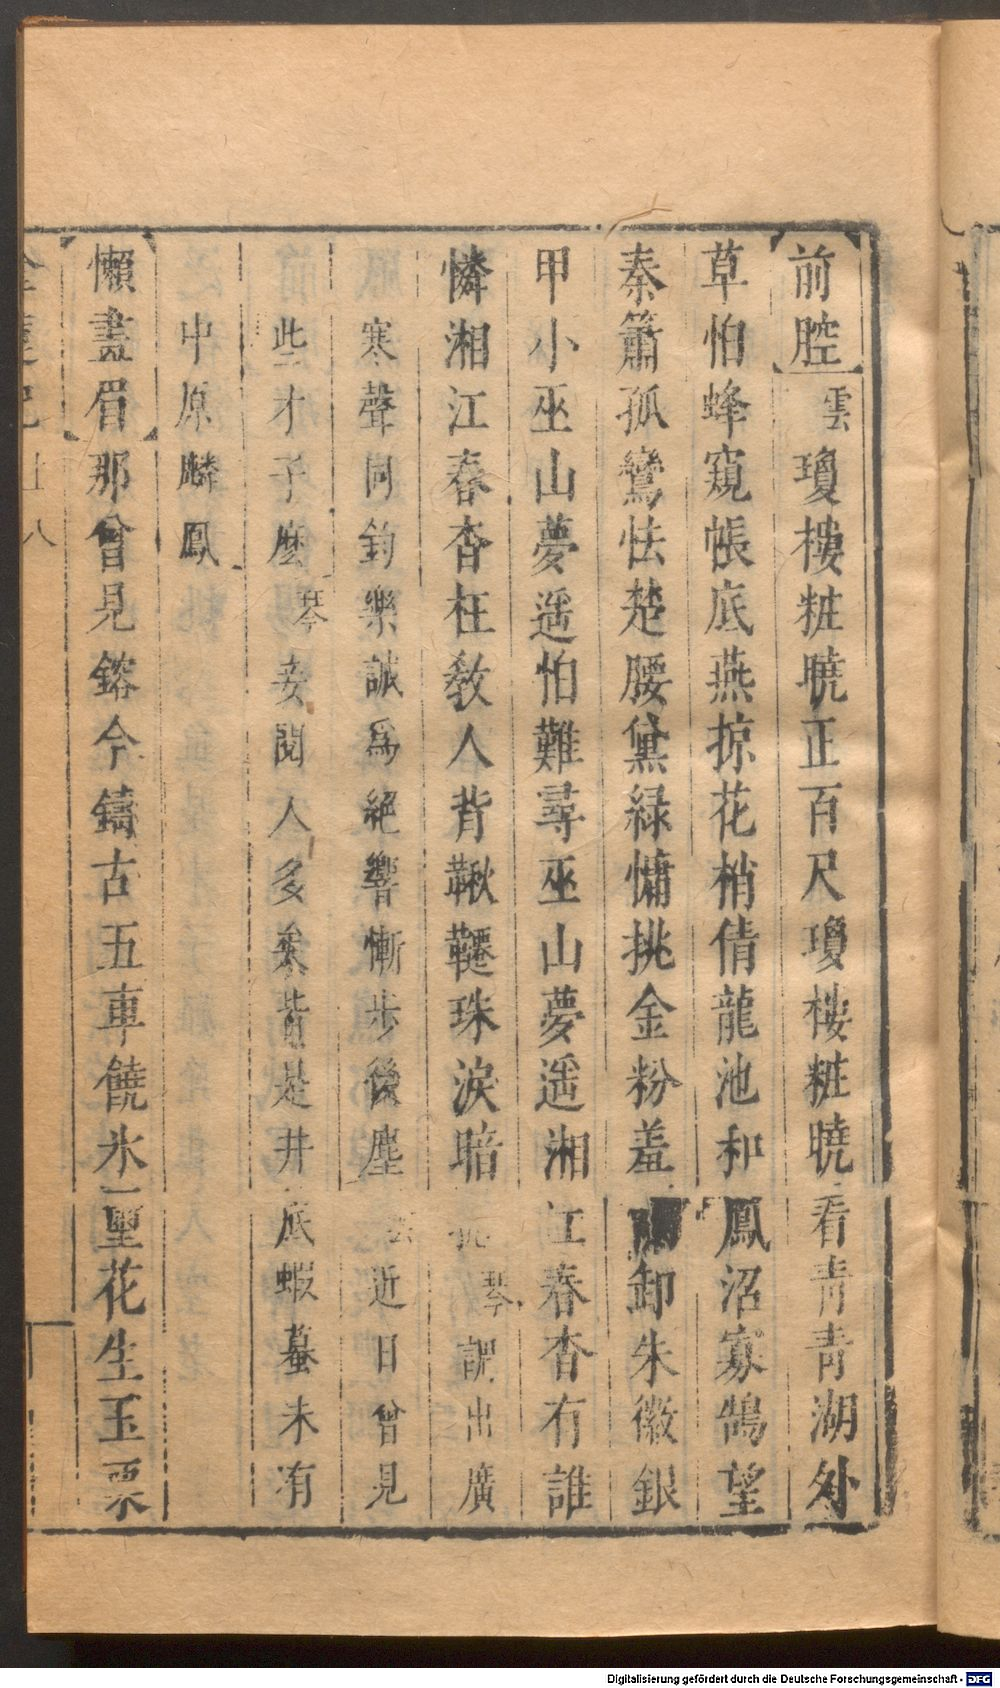 前腔雲瓊樓粧曉正百尺瓊樓粧曉看青青湖外
草怕蜂窺帳底燕掠花梢倩龍池和鳳沼寡鵠望
秦簫孤鸞怯楚腰黛綠慵挑金粉羞卸朱徽銀
甲小巫山夢遥怕難尋巫山夢遥湘江春杳有誰
憐湘江春杳枉教人背鞦韆珠淚暗琴調出廣
寒聲同鈞樂誠爲絕響慚步後塵近日曾見
此才子麽琴妾閱人多矣皆是井底蝦蟇未有
中原麟鳳
懶畫眉那曾見鎔今鑄古五車饒氷璽花生玉栗
八
Digitalisierung gefördert durch die Deutsche Forschungsgemeinschaft - DFG